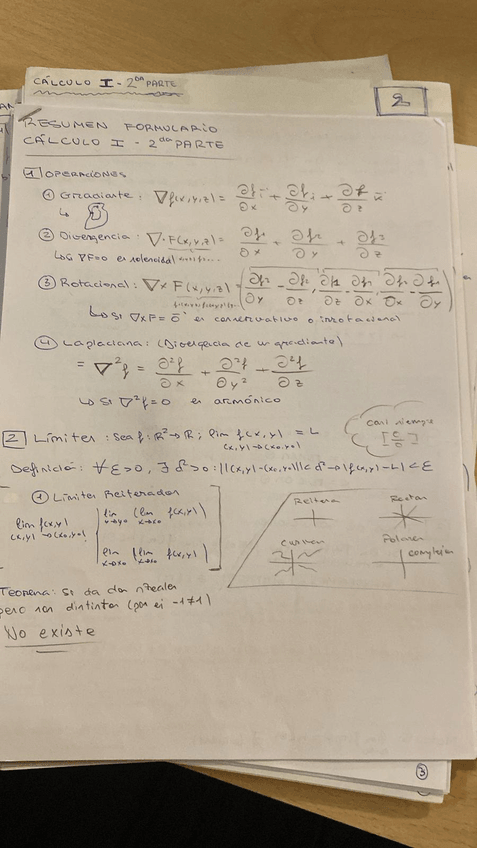 CÁLCULO I - 2DA PARTE
2
RESUMEN FORMULARIO
CÁLCULO I - 2da PARTE
1 OPERACIONES
① Gradiente: ∇f(x,y,z) = ∂f/∂x i + ∂f/∂y j + ∂f/∂z k
② Divergencia: ∇·F(x,y,z) = ∂f1/∂x + ∂f2/∂y + ∂f3/∂z
↳ Si ∇F=0 es solenoidal
③ Rotacional: ∇x F(x,y,z) = (∂f3/∂y - ∂f2/∂z, ∂f1/∂z - ∂f3/∂x, ∂f2/∂x - ∂f1/∂y)
↳ Si ∇xF = 0 es conservativo o irrotacional
④ Laplaciana: (Divergencia de un gradiante)
= ∇²f = ∂²f/∂x + ∂²f/∂y² + ∂²f/∂z
↳ Si ∇²f=0 es armónico
2 Límites: Sea f: R²→R; lim f(x,y) = L
(x,y)→(x0,y0)
casi siempre
[0/0]
Definició: ∀ε>0, ∃ δ>0: ||(x,y)-(x0,y0)||<δ→|f(x,y)-L|<ε
① Límites Reiterados
lim f(x,y)
(x,y)→(x0,y0)
lim (lim f(x,y))
y→y0 x→x0
lim (lim f(x,y))
Reitera Rectas
Curvas Polares
complejas
Teorema: Si da dos reales
pero son distintos (por ej -1≠1)
No existe
3